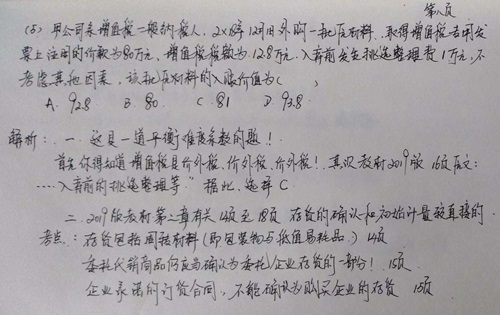 第八页
(5) 甲公司系增值税一般纳税人，2×18年12月1日外购一批原材料，取得增值税专用发
票上注明的价款为80万元，增值税税额为12.8万元，入库前发生挑选整理费1万元，不
考虑其他因素，该批原材料的入账价值为（ ）
A. 92.8 B 80. C. 81 D. 93.8.
解析：一. 这是一道平衡难度系数的题！
首先你得知道增值税是价外税、价外税、价外税！其次教材2019版 16页原文：
……入库前的挑选整理等" 据此, 选择 C.
二. 2019版教材第二章有关14页至18页 存货的确认和初始计量较直接的
考点：存货包括周转材料（即包装物与低值易耗品.）14页
委托代销商品仍应当确认为委托企业存货的一部分！ 15页
企业承诺的订货合同, 不能确认为购买企业的存货 15页